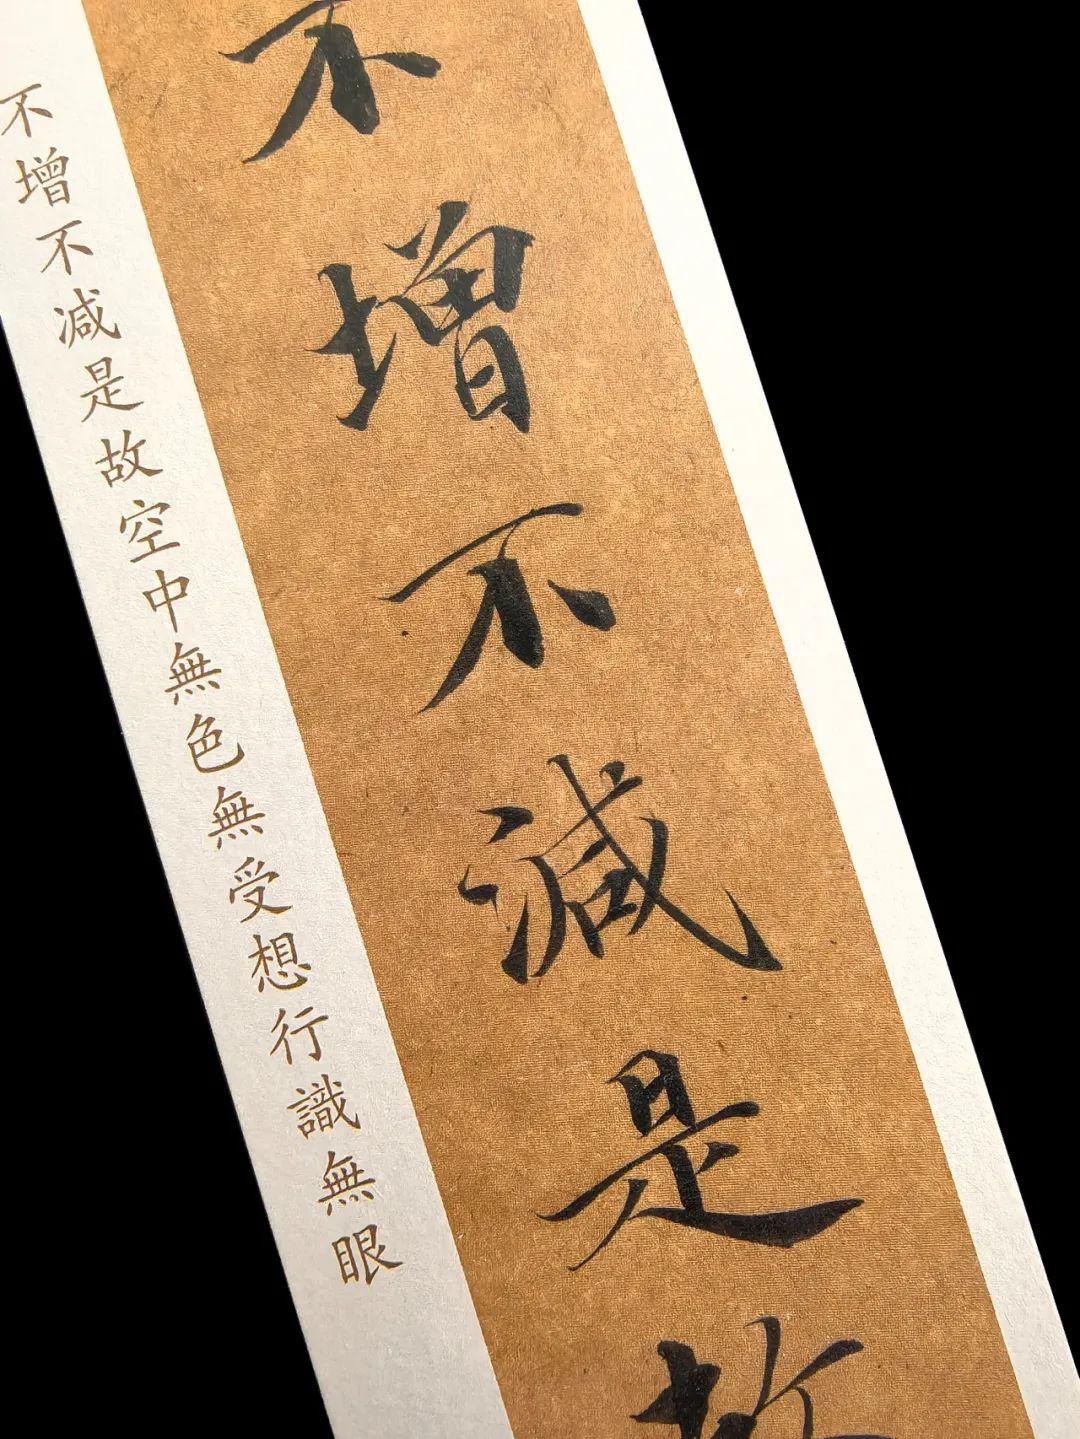 不增不減是故
不增不减是故空中無色無受想行識無眼